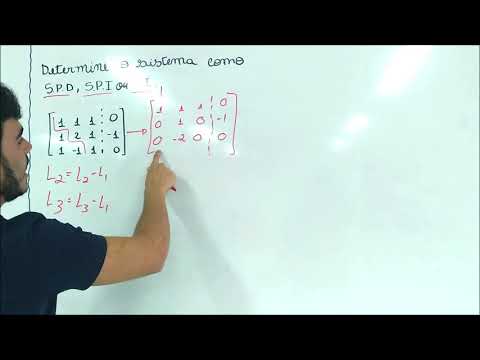 Determine o sistema como
S.P.D, S.P.I ou
1 1 1 0
1 2 1 -1
1 -1 1 0
1 1 1 0
0 1 0 -1
0 -2 0 0
L2 = L2 - L1
L3 = L3 - L1